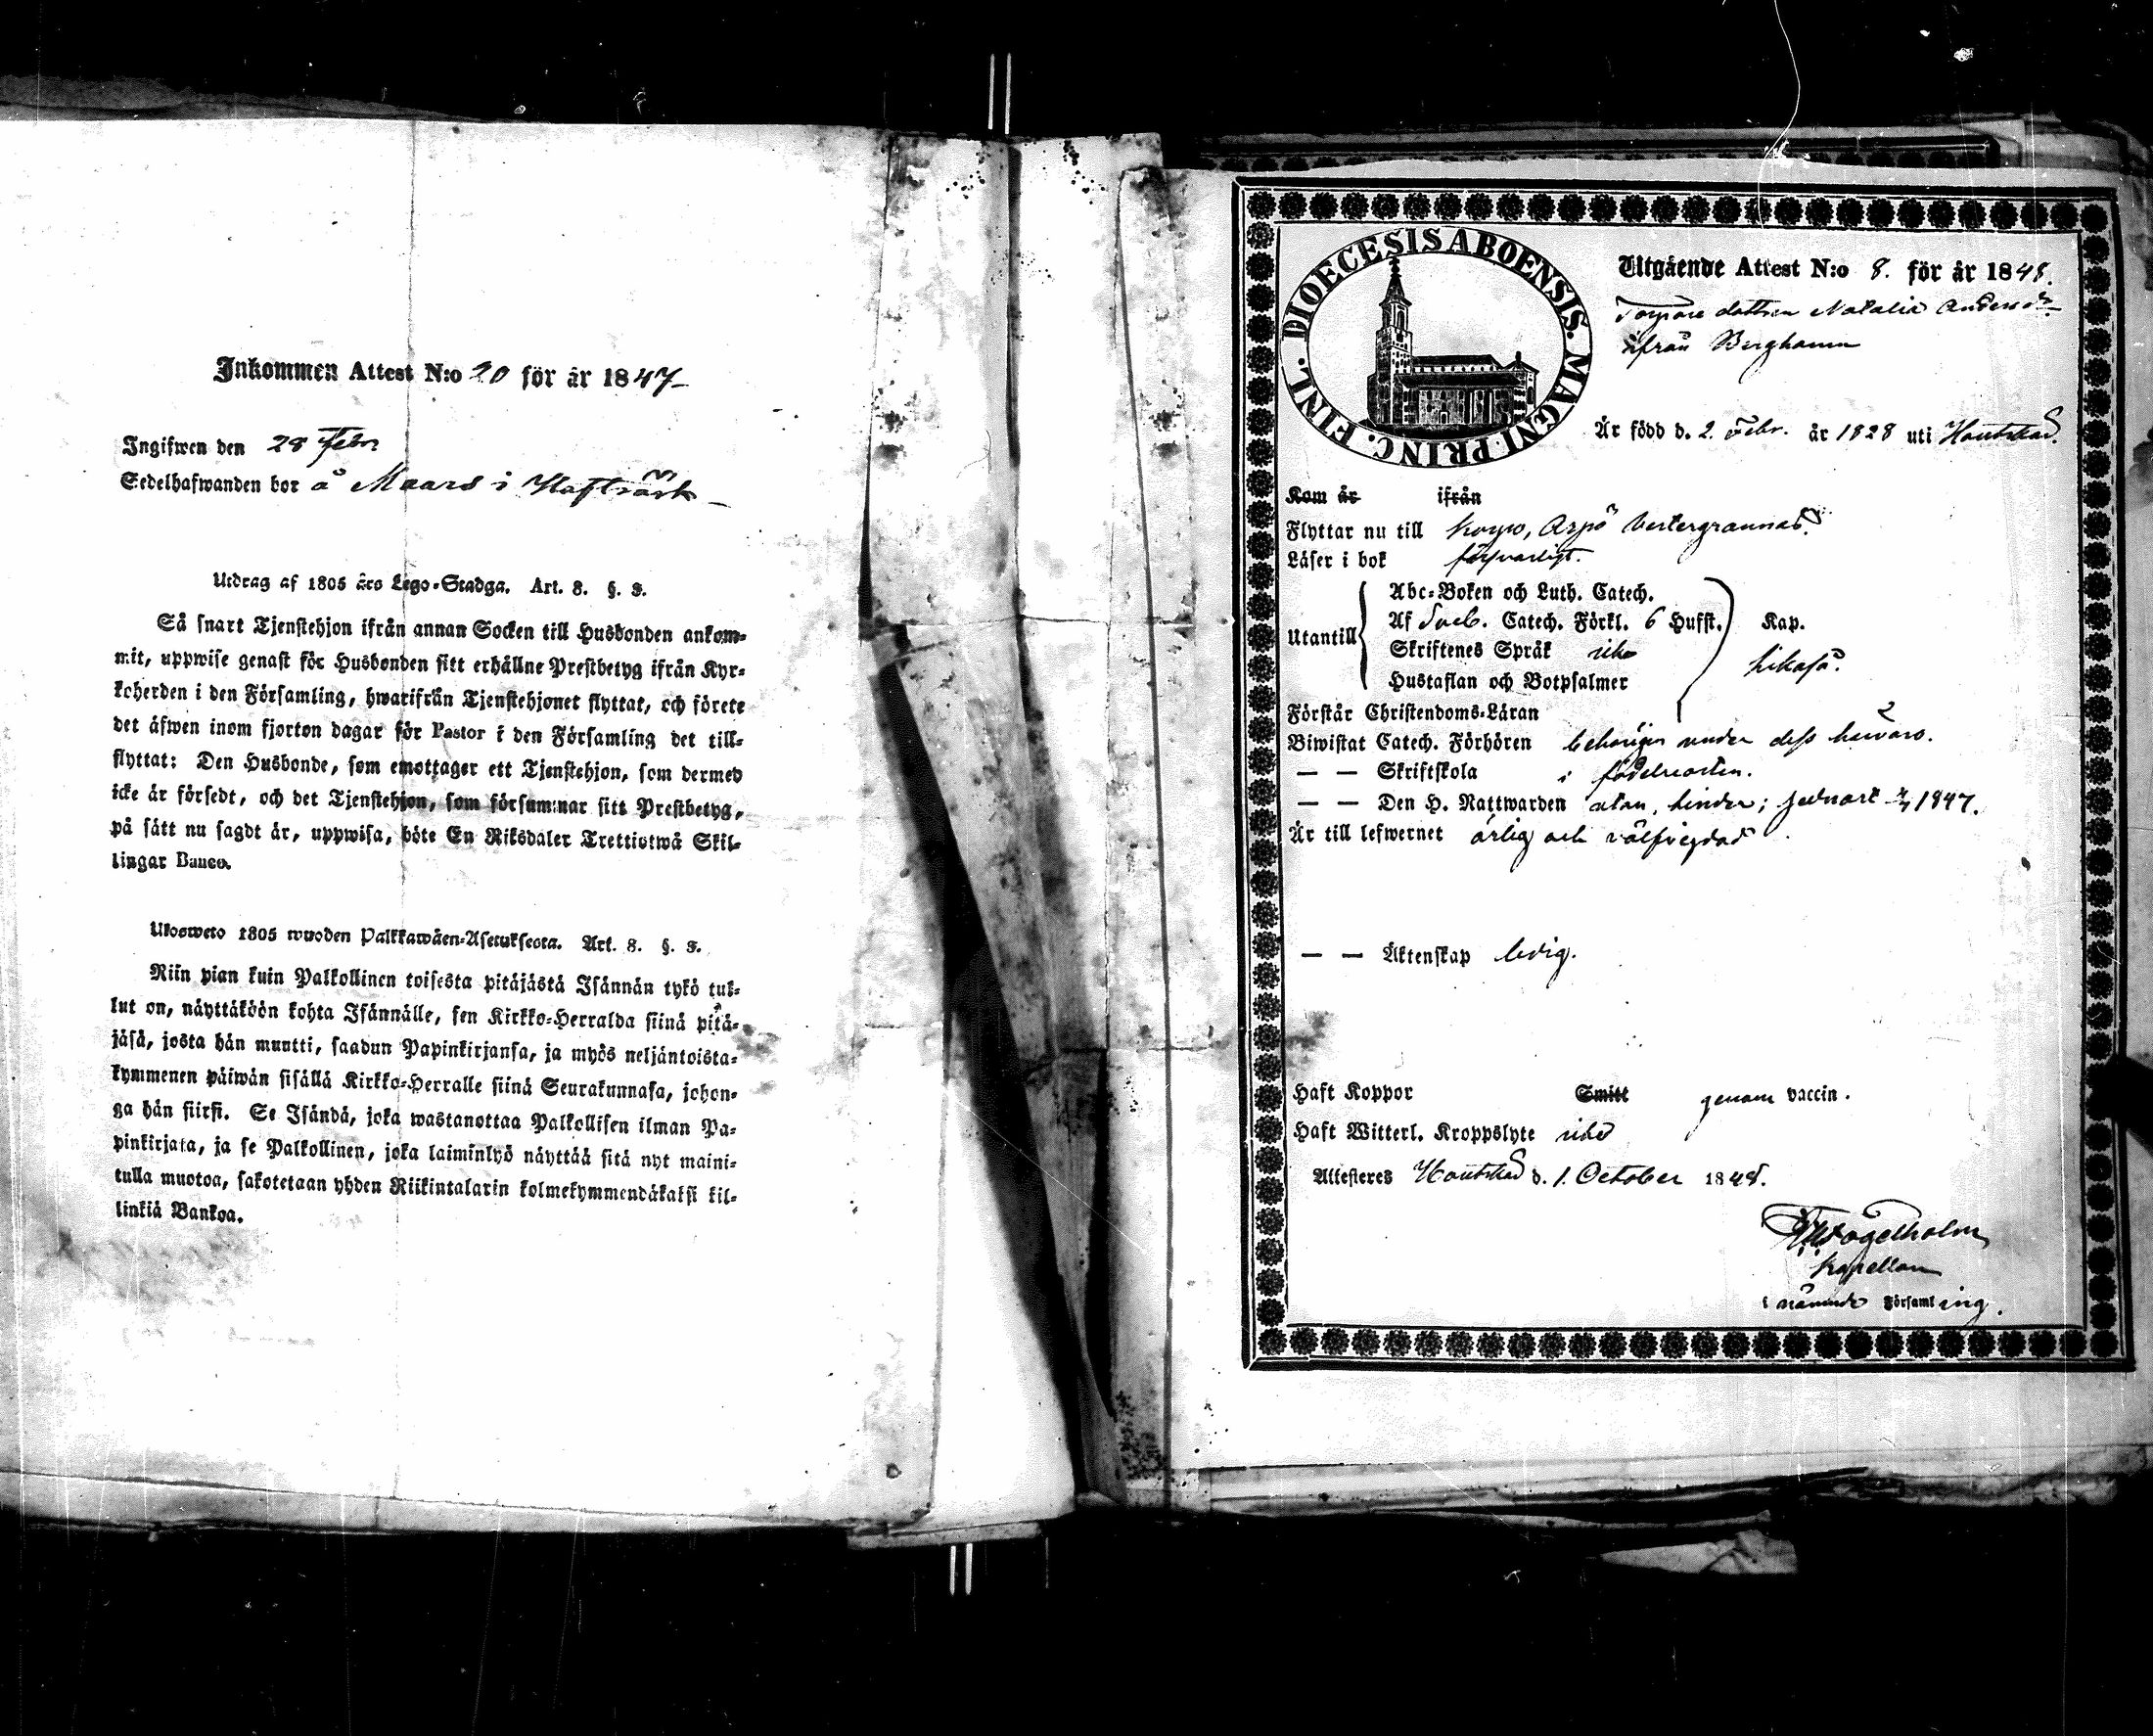 Inkommen Attest N:o 20 för år 1847
Ingifwen den 28 Febr
Sedelhafwanden bor å Maars i Hafträsk
Utdrag af 1805 års Lego-Stadga. Art. 8. §. 3.
Så snart Tjenstehjon ifrån annan Socken till Husbonden ankom-
mit, uppwise genast för Husbonden sitt erhållne Prestbetyg ifrån Kyr-
koherden i den Församling, hwarifrån Tjenstehjonet flyttat, och förete
det äfwen inom fjorton dagar för Pastor i den Församling det till-
flyttat: Den Husbonde, som emottager ett Tjenstehjon, som dermed
icke är försedt, och det Tjenstehjon, som försummar sitt Prestbetyg,
på sätt nu sagdt är, uppwisa, böte En Riksdaler Trettiotwå Skil-
lingar Banco.
Ulosweto 1805 wuoden Palkkawäen-Asetuksesta. Art. 8. §. 3.
Niin pian kuin Palkollinen toisesta pitäjästä Isännän tykö tul-
lut on, näyttäköön kohta Isännälle, sen Kirkko-Herralda siinä pitä-
jäsä, josta hän muutti, saadun Papinkirjansa, ja myös neljäntoista-
kymmenen päiwän sisällä Kirkko-Herralle siinä Seurakunnasa, johon-
ga hän siirsi. Se Isändä, joka wastanottaa Palkollisen ilman Pa-
pinkirjata, ja se Palkollinen, joka laiminlyö näyttää sitä nyt maini-
tulla muotoa, sakotetaan yhden Riikintalarin kolmekymmendäkaksi kil-
linkiä Bankoa.
DIOECESIS ABOENSIS. MAGNI PRINC. FINL.
Utgående Attest N:o 8. för år 1848.
Torpare dottren Natalia Andersdr
ifrån Berghamn
Är född d. 2. Febr. år 1828 uti Houtskär.
Kom år ifrån
Flyttar nu till Korpo, Aspö Vestergrannas.
Läser i bok försvarligt.
Abc-Boken och Luth. Catech.
Utantill Af Sveb. Catech. Förkl. 6 Hufst. Kap.
Skriftenes Språk icke
likaså.
Hustaflan och Botpsalmer
Förstår Christendoms-Läran
Biwistat Catech. Förhören behörigen under dess härvaro.
— — Skriftskola i födelseorten.
— — Den H. Nattwarden utan hinder; 1847.
Är till lefwernet ärlig och välfrejdad
— — Äktenskap ledig.
Haft Koppor Smitt genom vaccin.
Haft Witterl. Kroppslyte icke
Attesteres Houtskär d. 1. October 1848.
Fogelholm
Kapellan
i nämnde Församling.